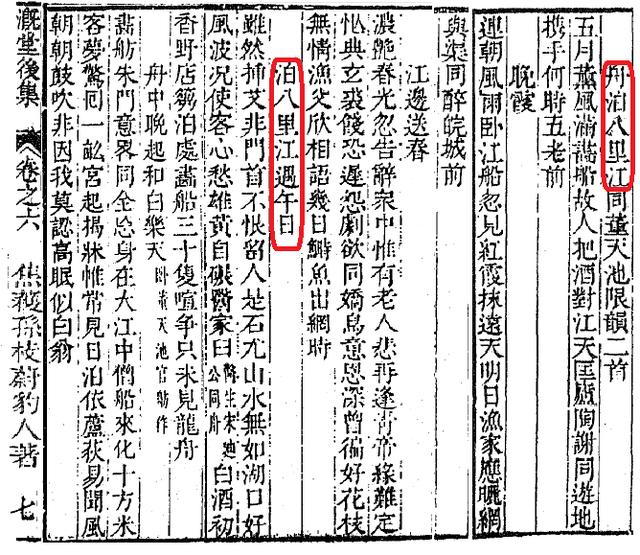 舟泊八里江同董天池限韻二首
五月薰風滿畫船故人把酒對江天匡廬陶謝同遊地
携手何時五老前
晚霞
連朝風雨臥江船忽見紅霞抹遠天明日漁家應曬網
與渠同醉皖城前
江邊送春
濃艷春光忽告辭衆中惟有老人悲再逢青帝緣難定
典玄裘餞恐遲怨劇欲同嬌鳥意恩深曾徧好花枝
無情漁父欣相語幾日鰣魚出網時
泊八里江過午日
雖然揷艾非門首不恨留人是石尤山水無如湖口好
風波況使客心愁雄黃自碾醫家臼公同舟白酒初
香野店篘泊處畫船三十隻喧争只未見龍舟
舟中晚起和白樂天
畫舫朱門意畧同全忘身在大江中僧船來化十方米
客夢驚回一畝宮起揭牀帷常見日泊依蘆荻易聞風
朝朝鼓吹非因我莫認高眠似白翁
溉堂後集
卷之六
焦穫孫枝蔚豹人著
七